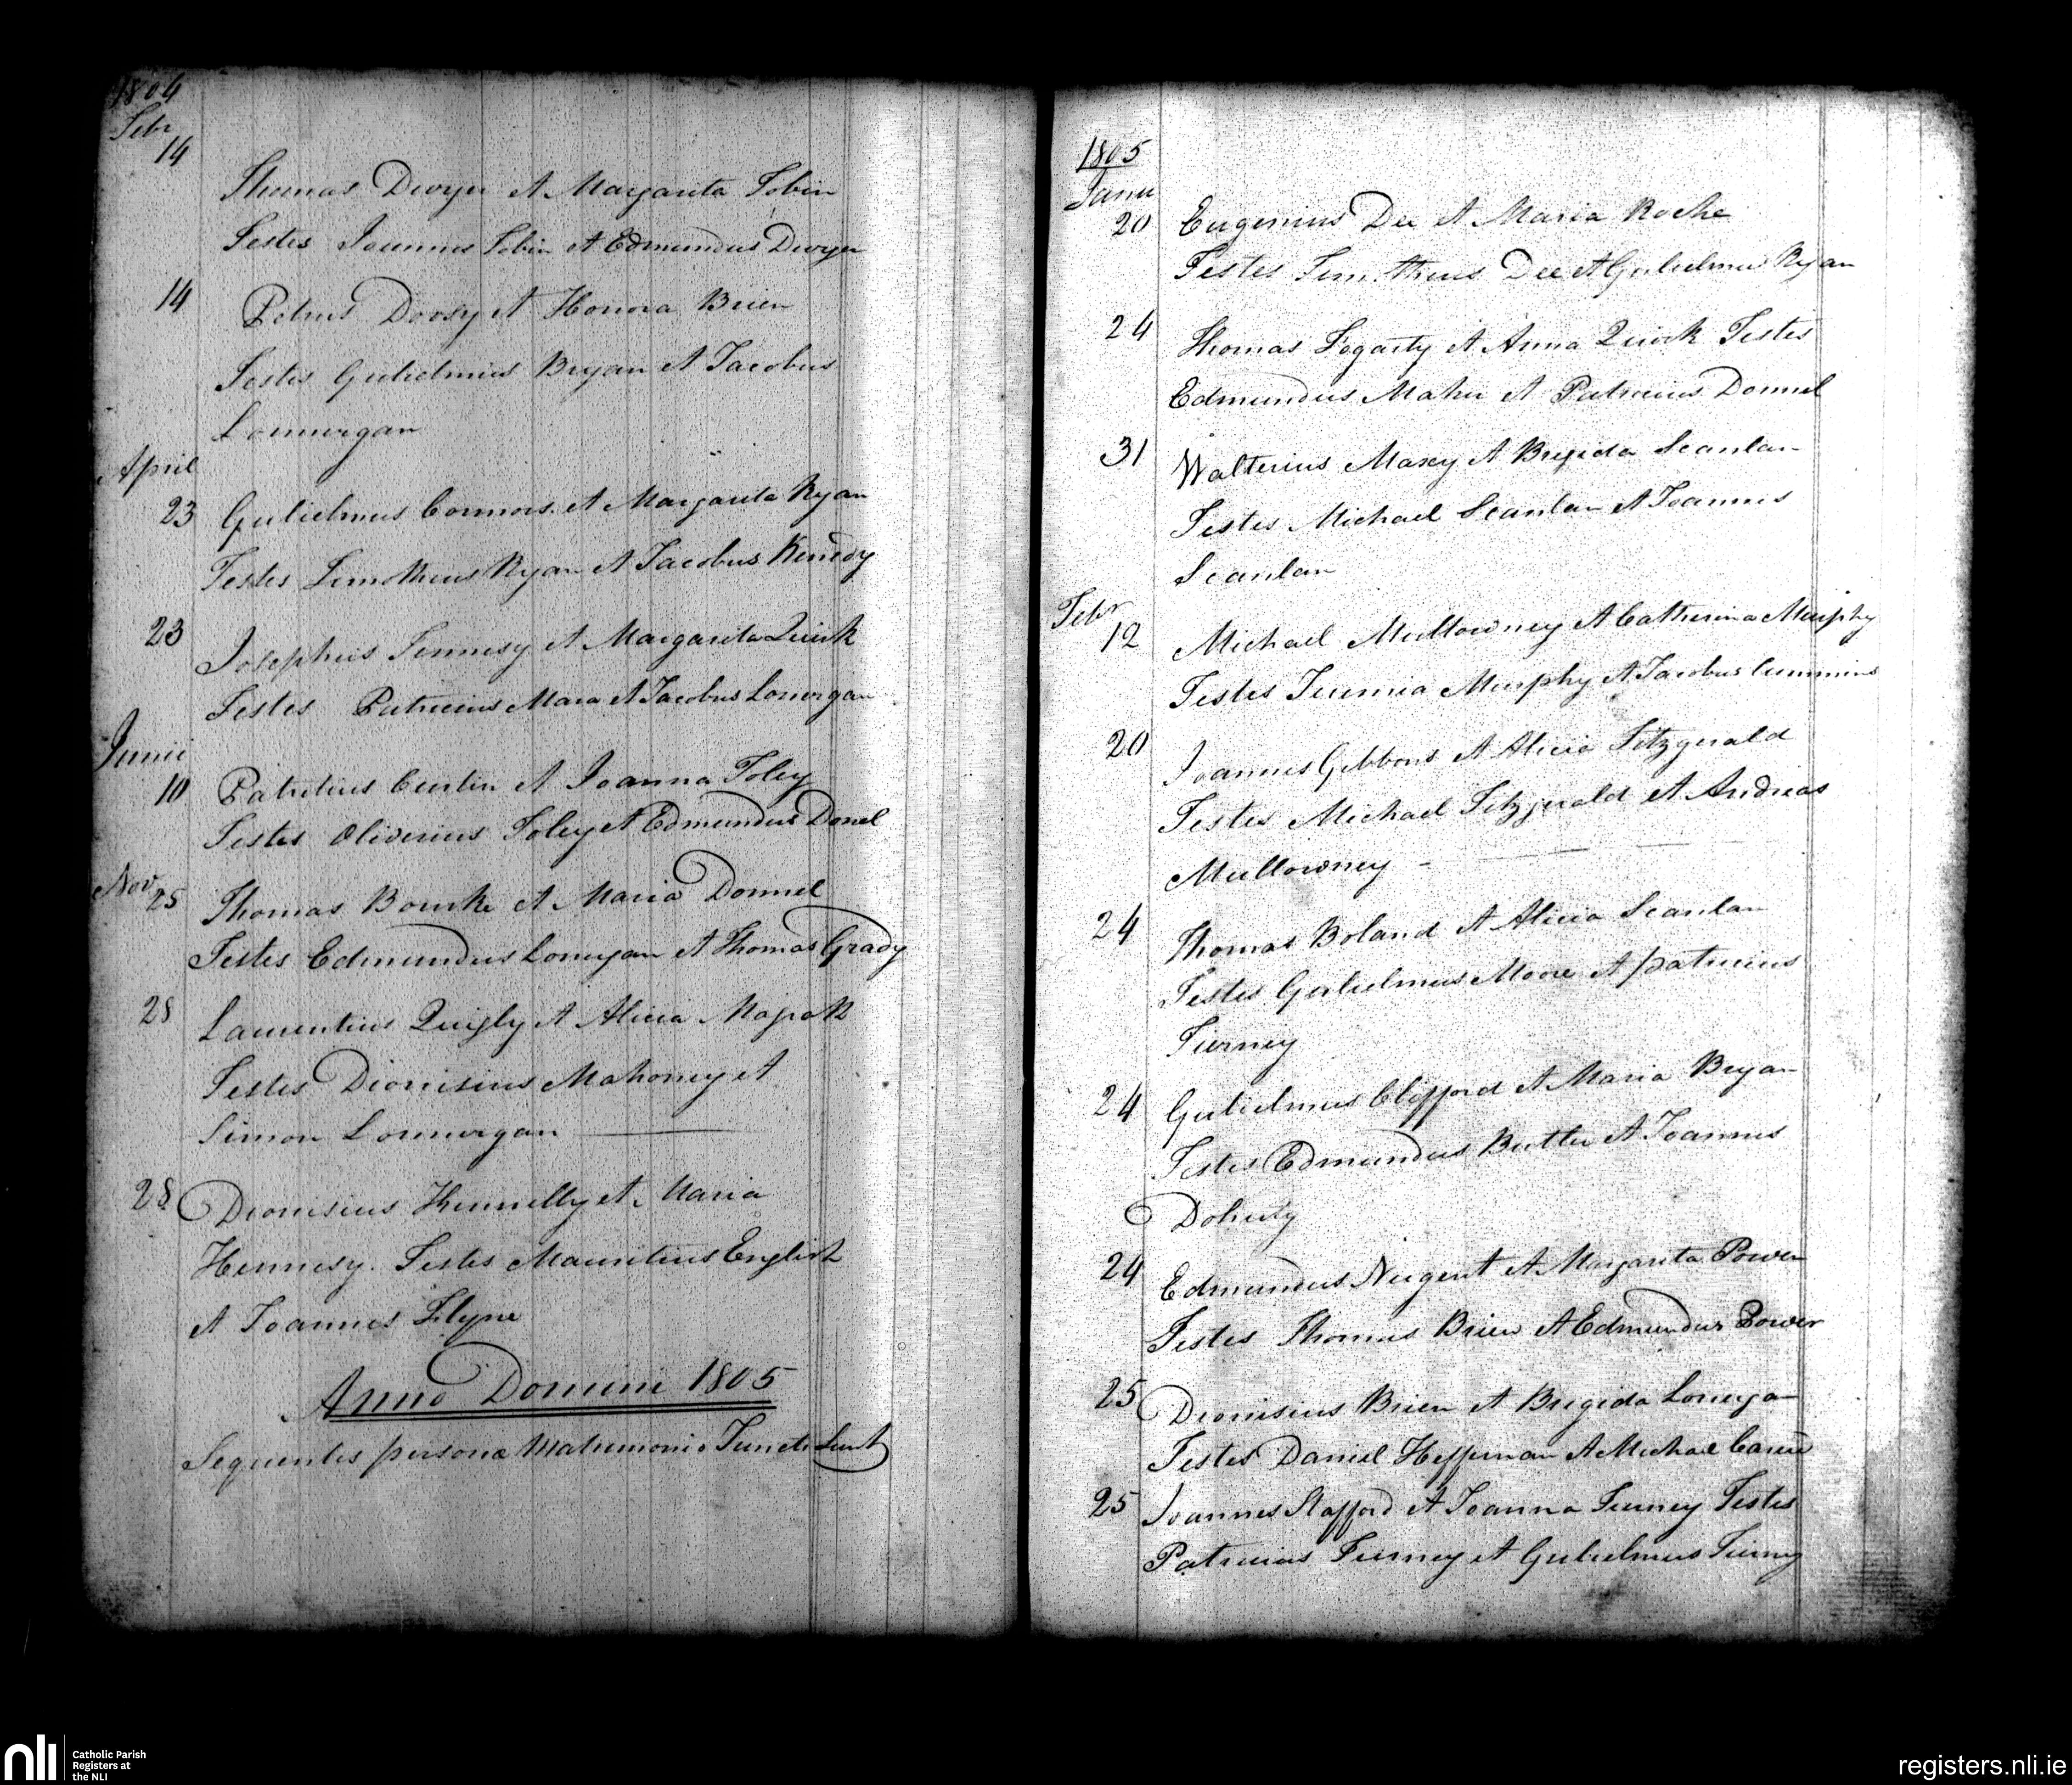 1804
Febr
14
Thomas Dwyer et Margarita Tobin
Testes Joannes Tobin et Edmundus Dwyer
14
Petrus Doosy et Honora Brien
Testes Gulielmus Bryan et Jacobus
Lonnergan
April
23 Gulielmus Connors et Margarita Ryan
Testes Timotheus Ryan et Jacobus Kenedy
23
Josephus Tennesy et Margarita Quirk
Testes Patricius Mara et Jacobus Lonergan
Junii
10 Patritius Curtin et Joanna Foley
Testes Oliverius Foley et Edmundus Donel
Nov 25 Thomas Bourke et Maria Donnel
Testes Edmundus Lonergan et Thomas Grady
28 Laurentius Quigly et Alicia
Testes Dionisius Mahoney et
Simon Lonnergan
28 Dionisius Thennelly et Maria
Hennesy. Testes Mauritius English
et Joannes Flyne
Anno Domini 1805
Sequentes personæ Matrimonio Juncti Sunt
1805
Janu
20 Eugenius Dee et Maria Roche
Testes Timotheus Dee et Gulielmus Ryan
24 Thomas Fogarty et Anna Quirk Testes
Edmundus Maher et Patricius Donnel
31 Walterius Maxy et Brigida Scanlan
Testes Michael Scanlan et Joannes
Scanlan
Febr
12 Michael Mullowney et Catherina Murphy
Testes Jeremia Murphy et Jacobus Cummins
20 Joannes Gibbons et Alicia Fitzgerald
Testes Michael Fitzgerald et Andreas
Mullowney -
24 Thomas Boland et Alicia Scanlan
Testes Gulielmus Moore et patricius
Tierney
24 Gulielmus Clifford et Maria Bryan
Testes Edmundus Butler et Joannes
Doherty
24 Edmundus Nugent et Margarita Power
Testes Thomas Brien et Edmundus Power
25 Dionisius Brien et Brigida Lonergan
Testes Daniel Heffernan et Michael
25 Joannes Stafford et Joanna Tierney Testes
Patricius Tierney et Gulielmus Tierny
nli Catholic Parish
Registers at
the NLI
registers.nli.ie